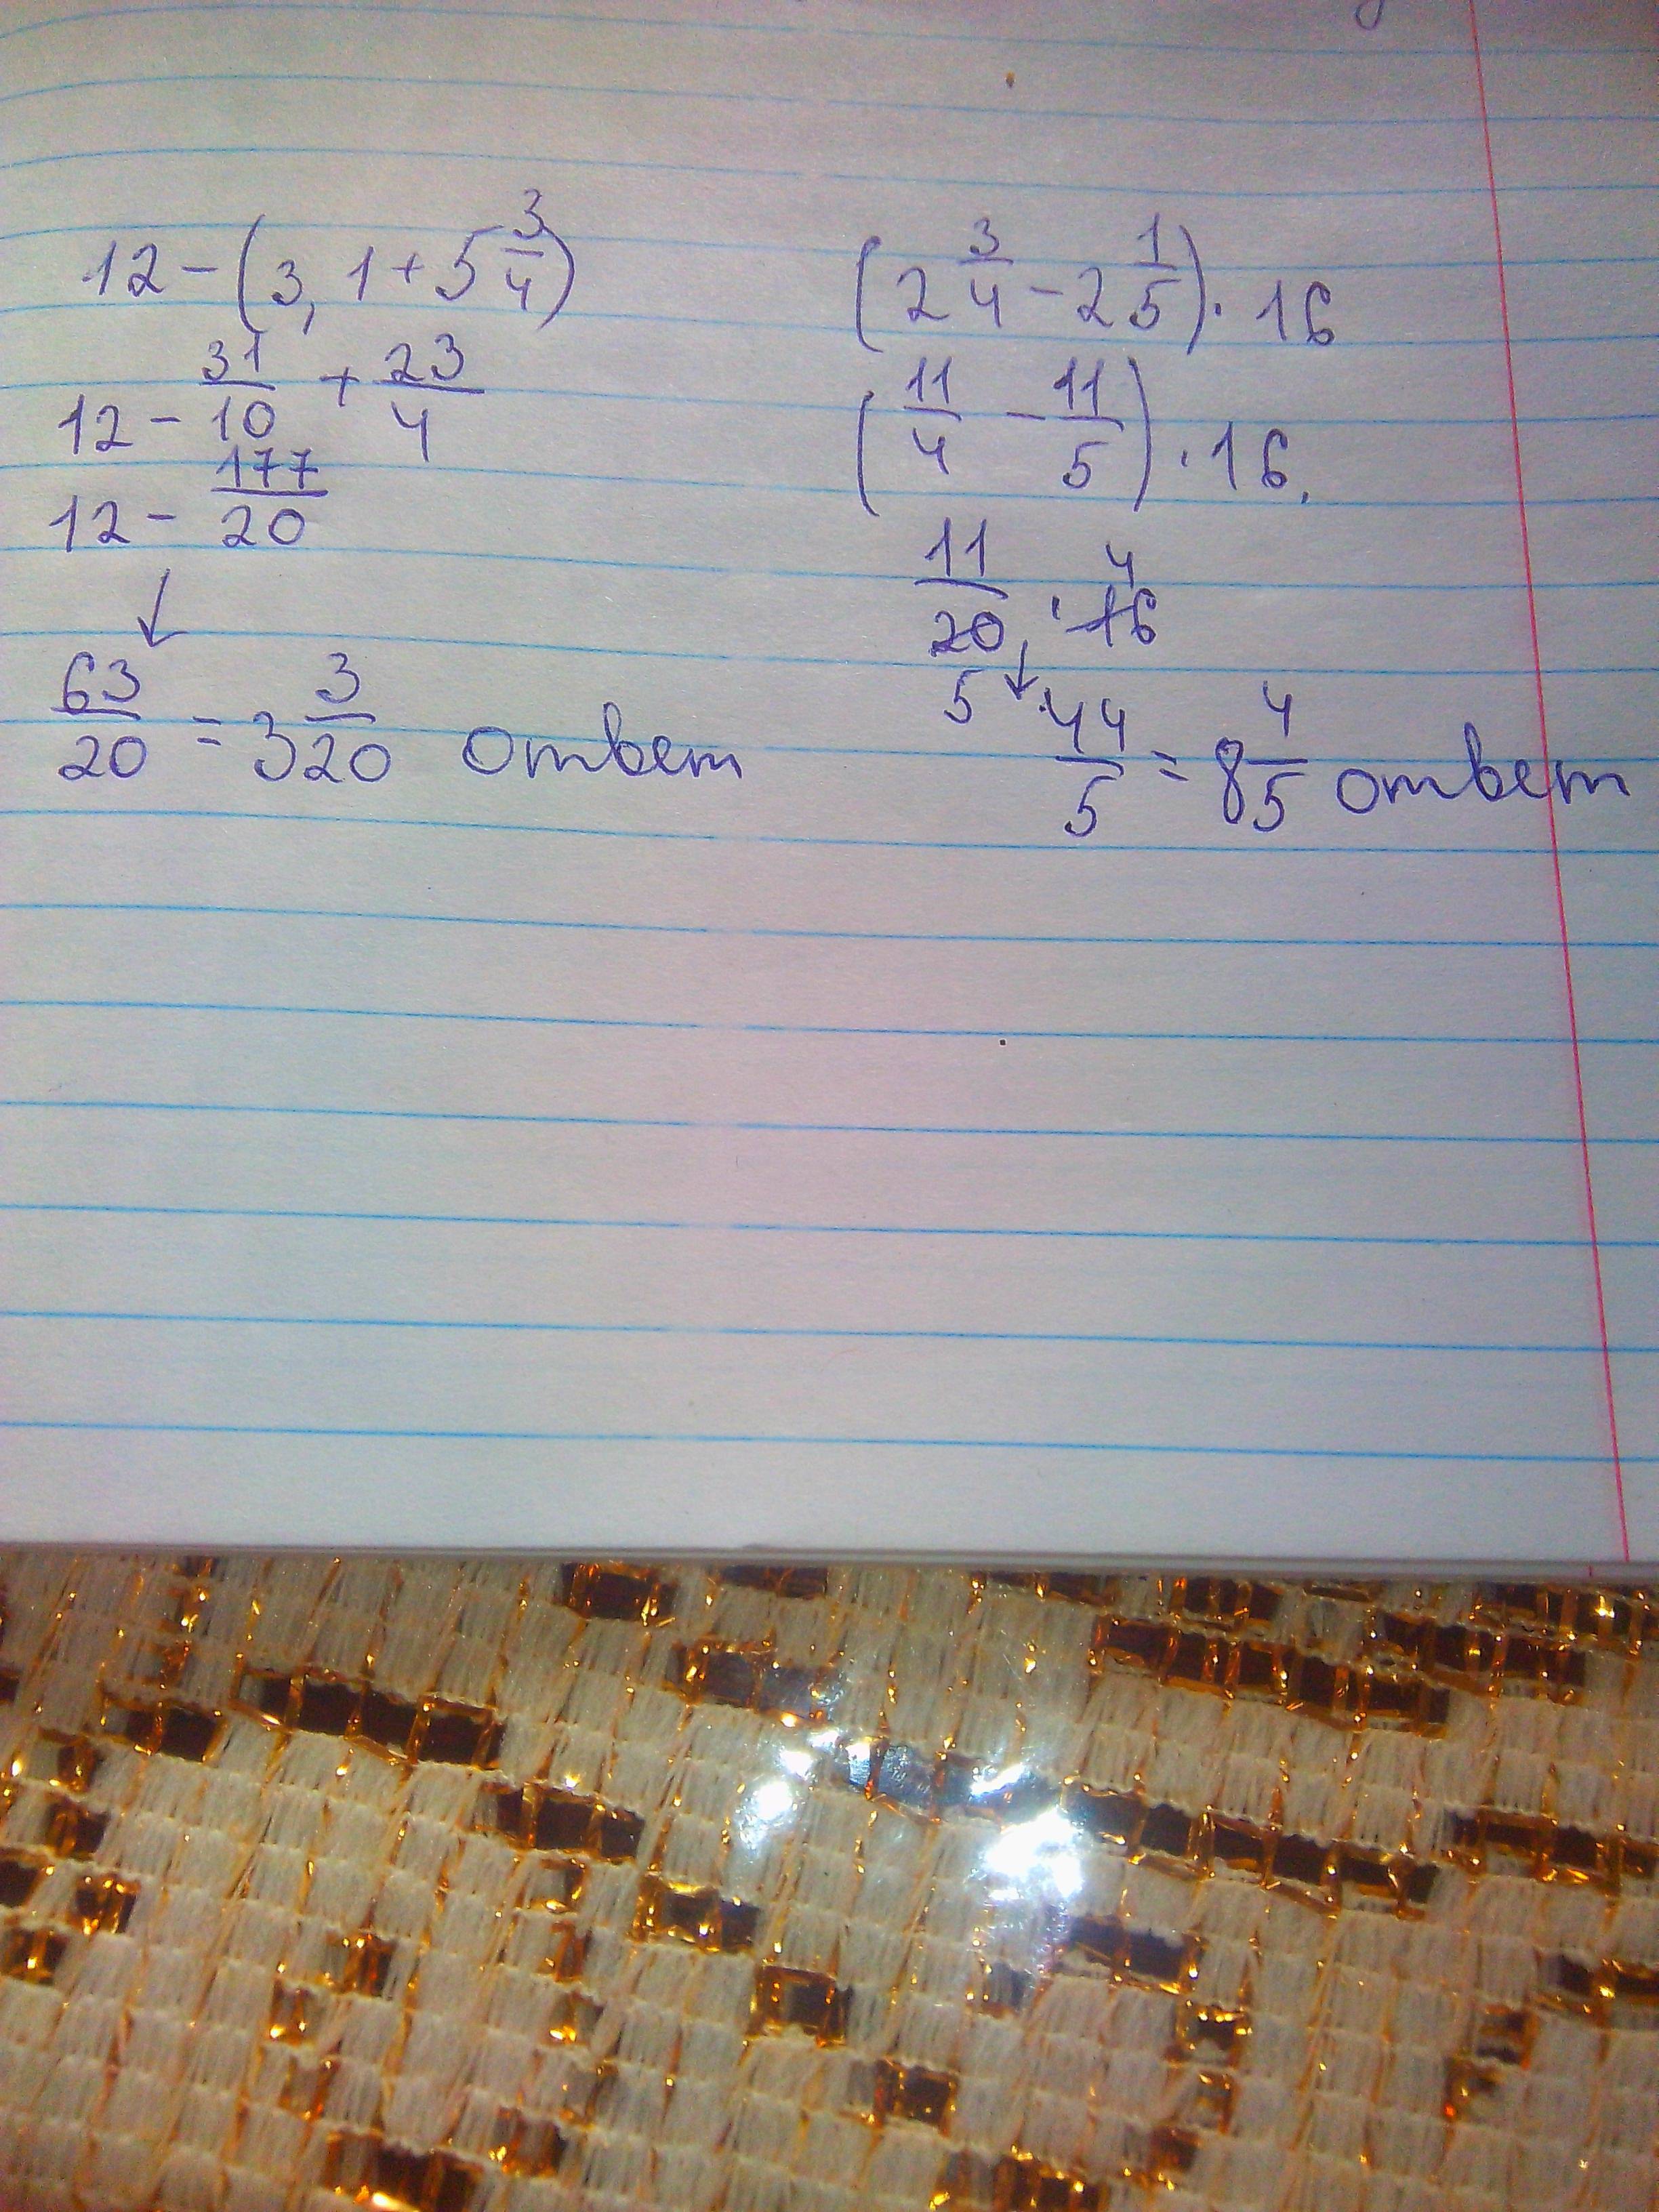 12 - (3,1 + 5 3/4)
12 - 31/10 + 23/4
12 - 177/20
↓
63/20 = 3 3/20 ответ
(2 3/4 - 2 1/5) · 16
(11/4 - 11/5) · 16.
11/20 · 16 4
5 ↓
44/5 = 8 4/5 ответ